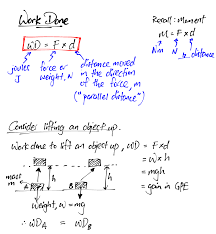 Work Done
Recall: Moment
WD = F × d
M = F × d
Nm N ⊥ distance
joules
J
force or
weight, N
distance moved
in the direction
of the force, m
("parallel distance")
Consider lifting an object up.
Work done to lift an object up, WD = F × d
= W × h
= mgh
= gain in GPE
mass
m
h
h
A
B
Weight, W = mg
∴ WD_A = WD_B